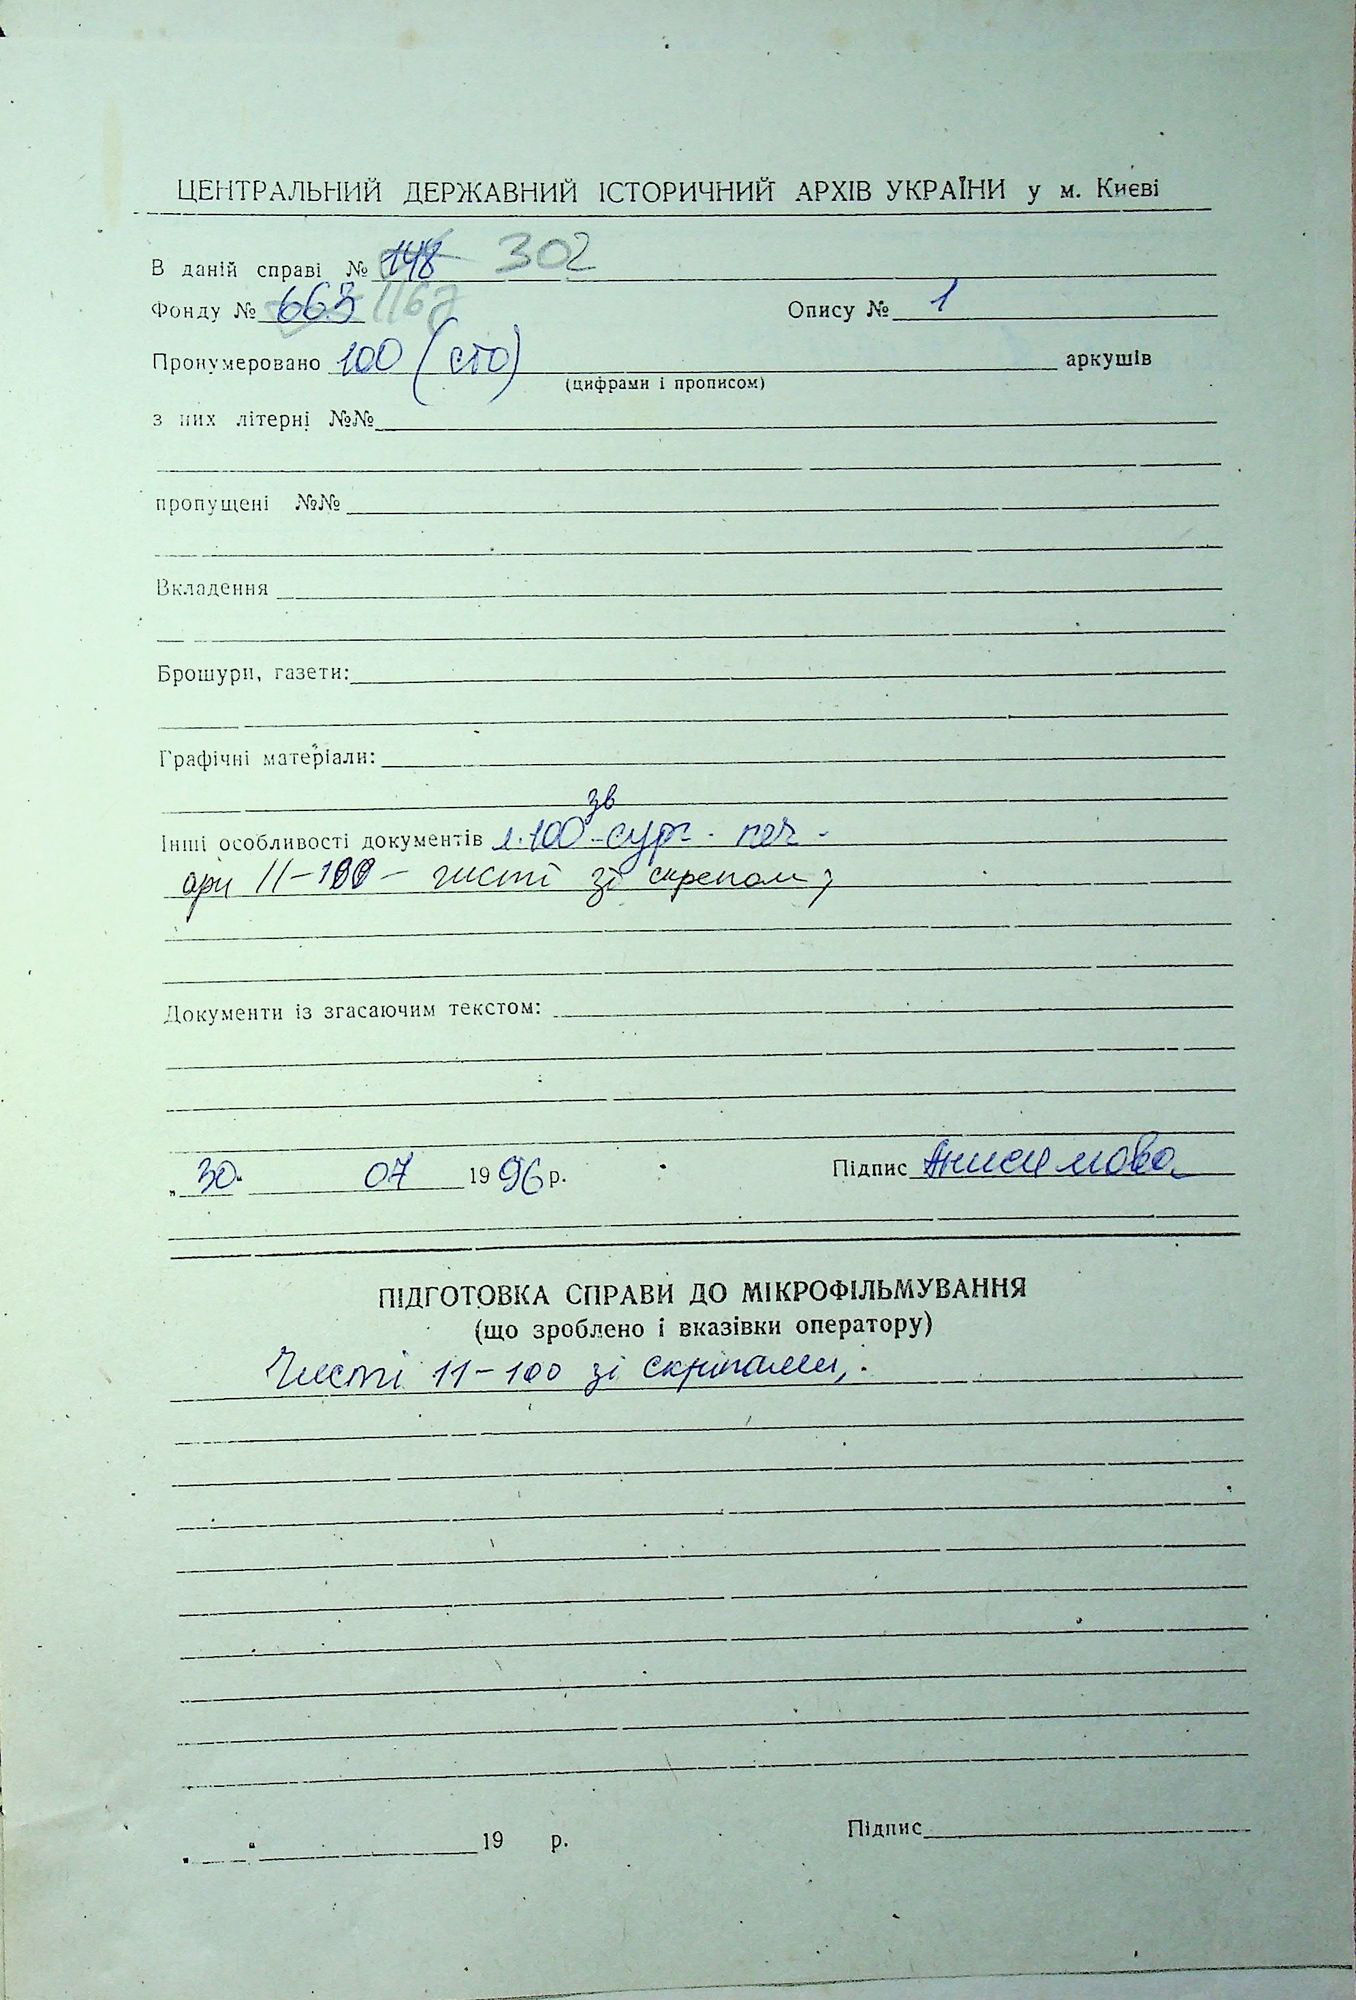 ЦЕНТРАЛЬНИЙ ДЕРЖАВНИЙ ІСТОРИЧНИЙ АРХІВ УКРАЇНИ у м. Києві
В даній справі № 148 302
Фонду № 663 1167 Опису № 1
Пронумеровано 100 (сто) аркушів
(цифрами і прописом)
з них літерні №№
пропущені №№
Вкладення
Брошури, газети:
Графічні матеріали:
Інші особливості документів л. 100 зв - сург. печ.
арк 11-100 - чисті зі скрепом,
Документи із згасаючим текстом:
„30“ 07 1996 р. Підпис Анисимова
ПІДГОТОВКА СПРАВИ ДО МІКРОФІЛЬМУВАННЯ
(що зроблено і вказівки оператору)
Чисті 11-100 зі скріпами,
19 р. Підпис